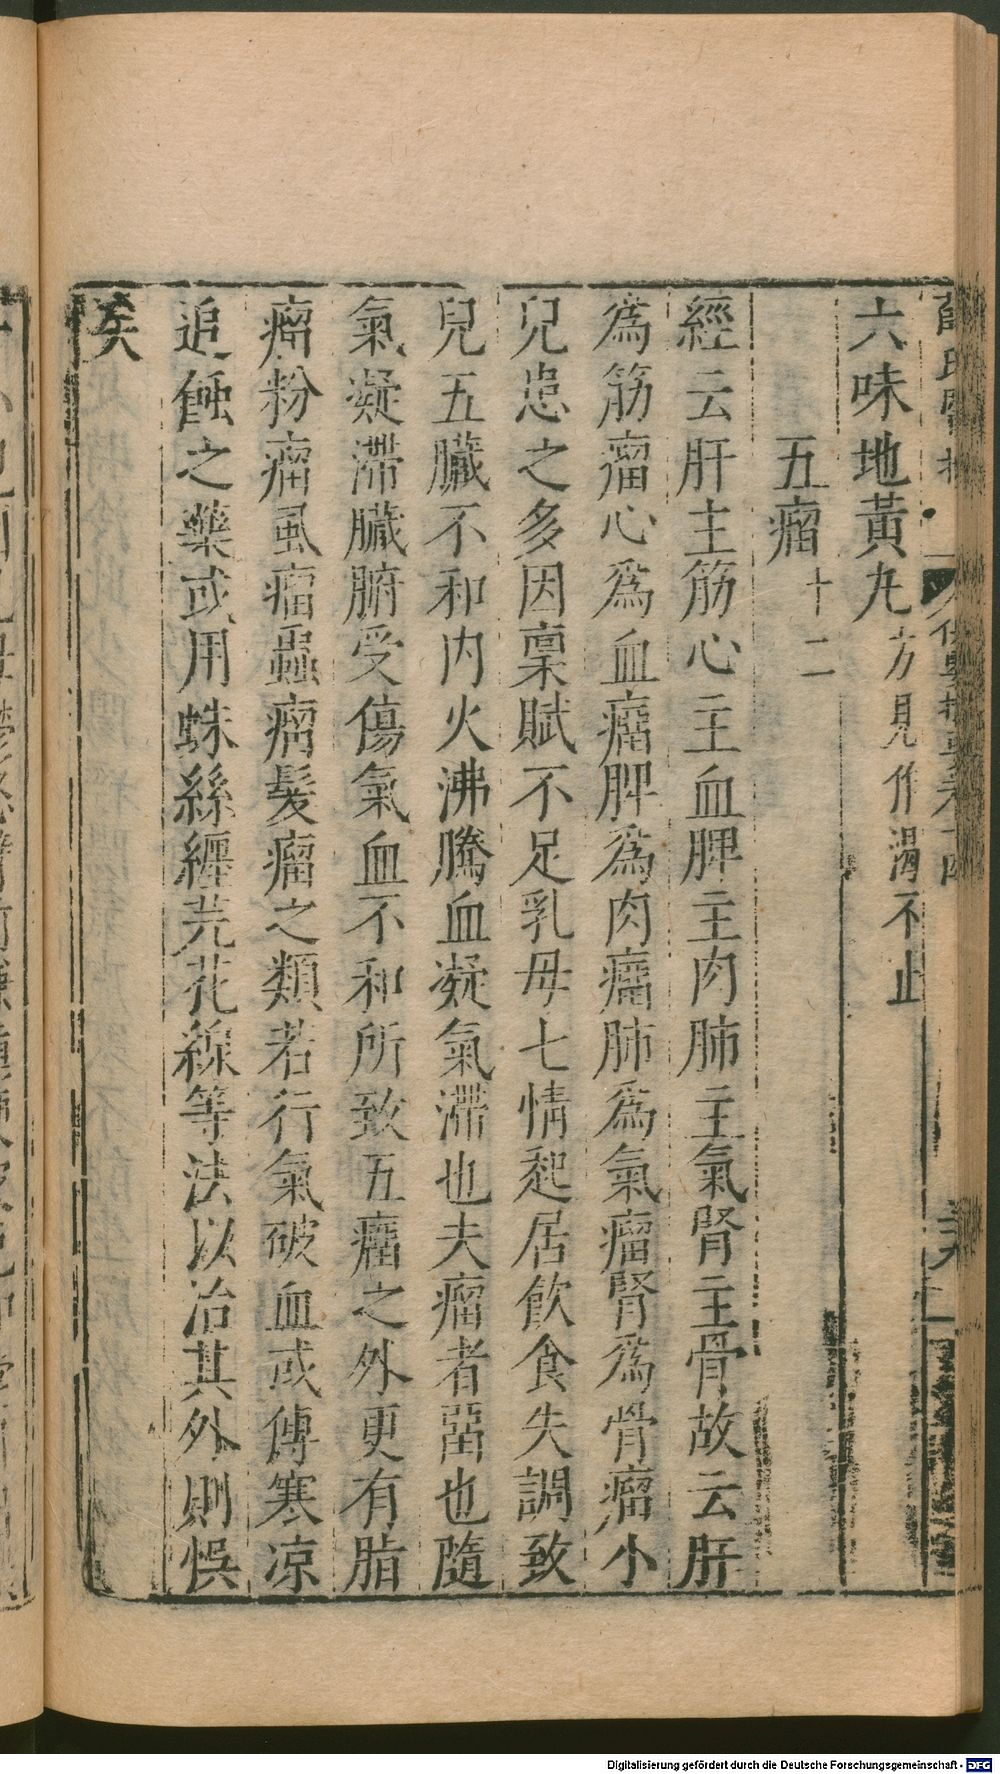 六味地黃丸 方見作渴不止
五瘤 十二
經云肝主筋心主血脾主肉肺主氣腎主骨故云肝
為筋瘤心為血瘤脾為肉瘤肺為氣瘤腎為骨瘤小
兒患之多因稟賦不足乳母七情起居飲食失調致
兒五臟不和内火沸騰血凝氣滯也夫瘤者畱也隨
氣凝滯臟腑受傷氣血不和所致五瘤之外更有脂
瘤粉瘤虱瘤蟲瘤髮瘤之類若行氣破血或傅寒凉
追蝕之藥或用蛛絲纏芫花線等法以治其外則悞
矣
Digitalisierung gefördert durch die Deutsche Forschungsgemeinschaft - DFG